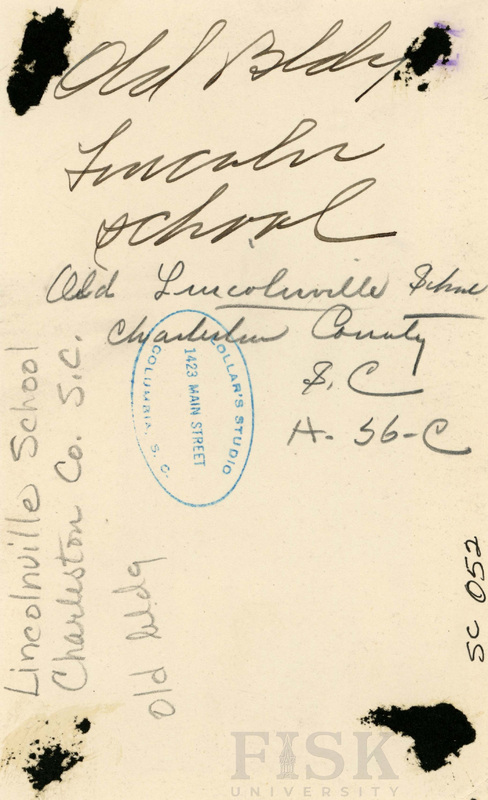 Old Bldg
Lincoln
School
Old Lincolnville School
Charleston County
S. C
A- 56-C
COLLAR'S STUDIO
1423 MAIN STREET
COLUMBIA, S. C.
Lincolnville School
Charleston Co. S.C.
Old bldg
SC 052
FISK
UNIVERSITY